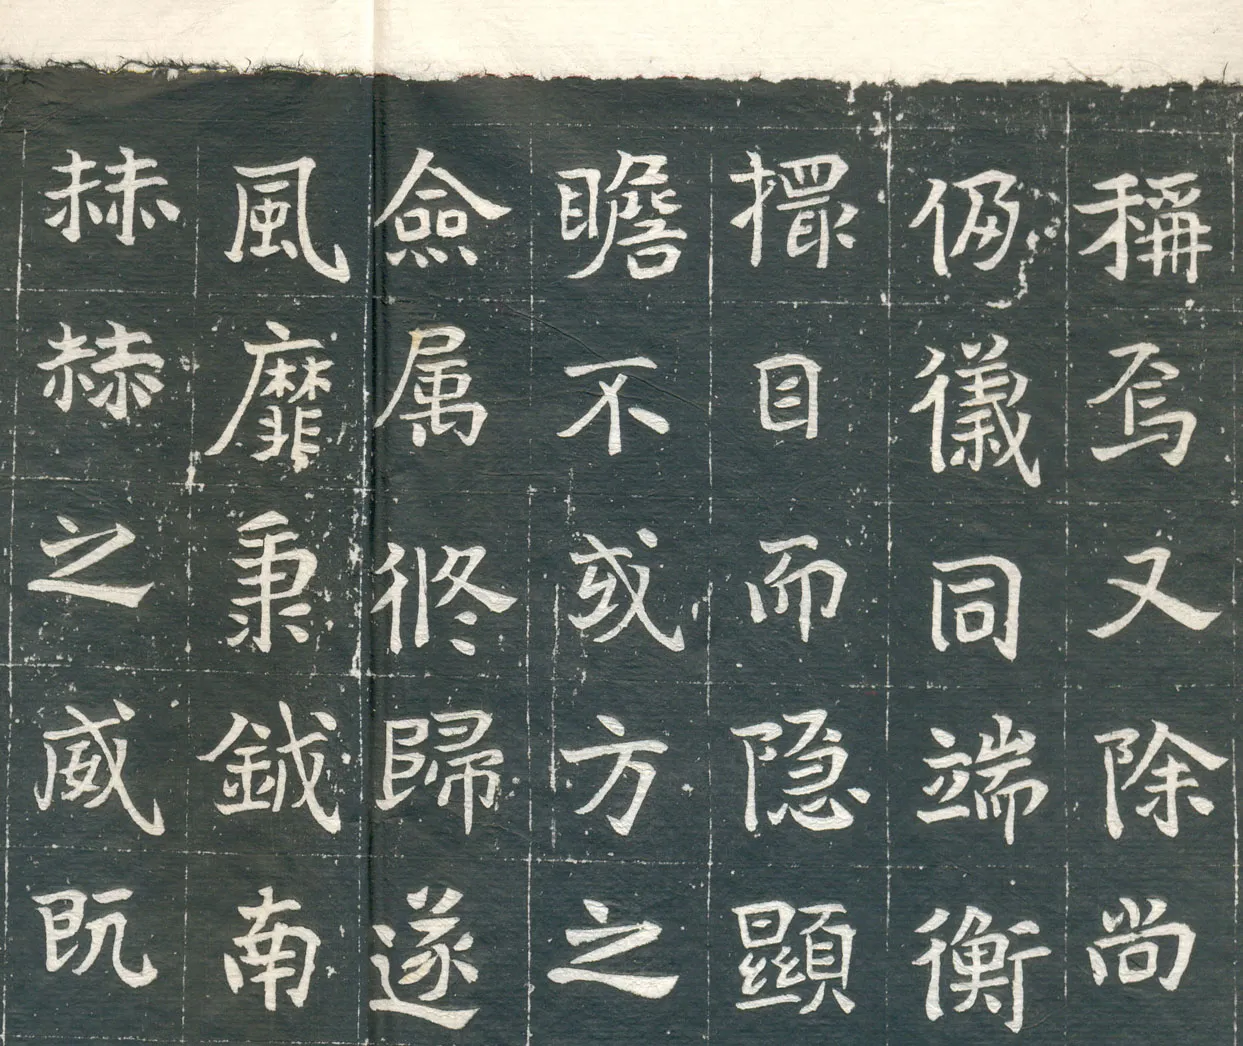 稱焉又除尚
仍儀同端衡
擢目而隐顯
瞻不或方之
僉属脩歸遂
風靡秉鉞南
赫赫之威既